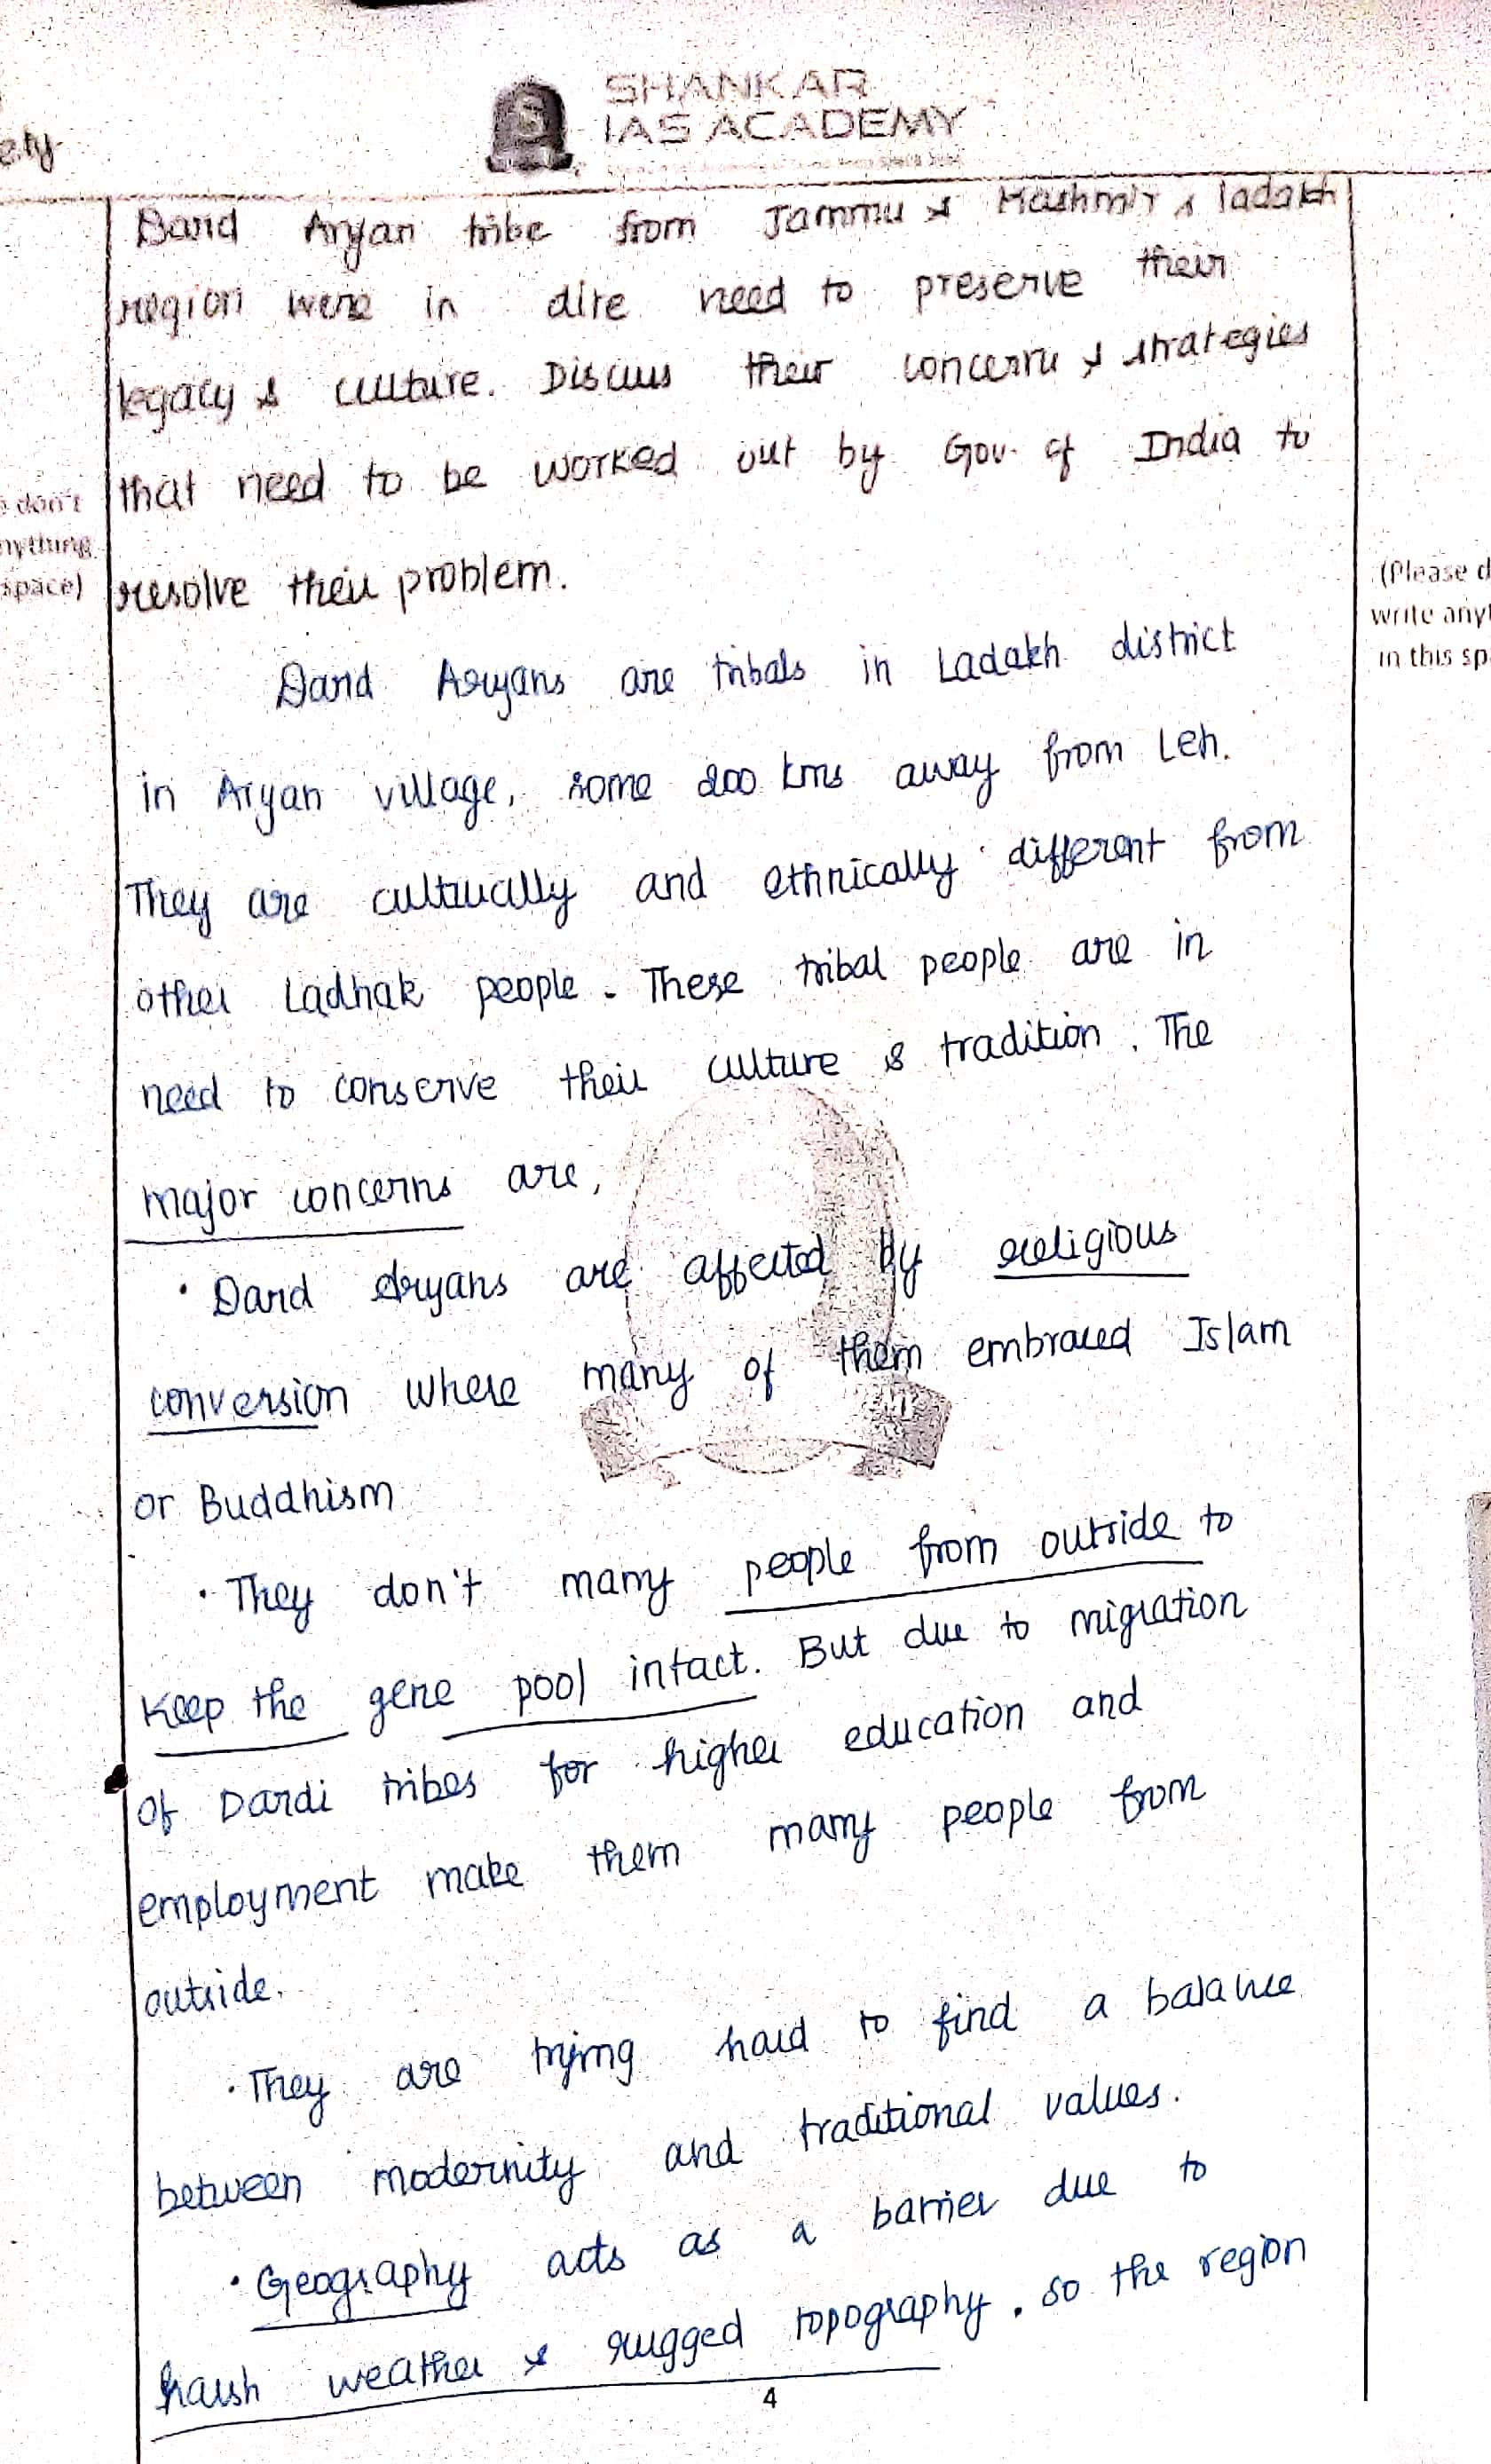 SHANKAR
IAS ACADEMY
ety
Dard Aryan tribe from Jammu & Kashmir & ladakh
region were in dire need to preserve their
legacy & culture. Discuss their concerns & strategies
that need to be worked out by Gov. of India to
resolve their problem.
don't
nything
space)
(Please d
write anyt
in this sp
Dard Aryans are tribals in Ladakh district
in Aryan village, some 200 kms away from Leh.
They are culturally and ethnically different from
other Ladhak people. These tribal people are in
need to conserve their culture & tradition. The
major concerns are,
· Dard Aryans are affected by religious
conversion where many of them embraced Islam
or Buddhism
· They don't marry people from outside to
keep the gene pool intact. But due to migration
of Dardi tribes for higher education and
employment make them marry people from
outside.
· They are trying hard to find a balance
between modernity and traditional values.
· Geography acts as a barrier due to
harsh weather & rugged topography. so the region
4